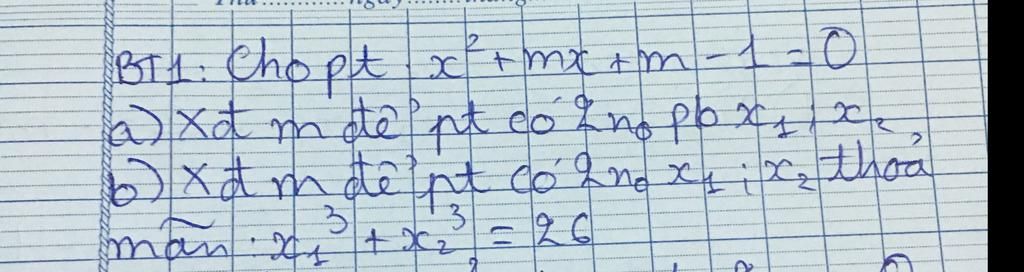 BT1: Cho pt: x² + mx + m - 1 = 0
a) Xđ m để pt có 2 no pb x₁, x₂
b) Xđ m để pt có 2 no x₁; x₂ thoả
mãn: x₁³ + x₂³ = 26